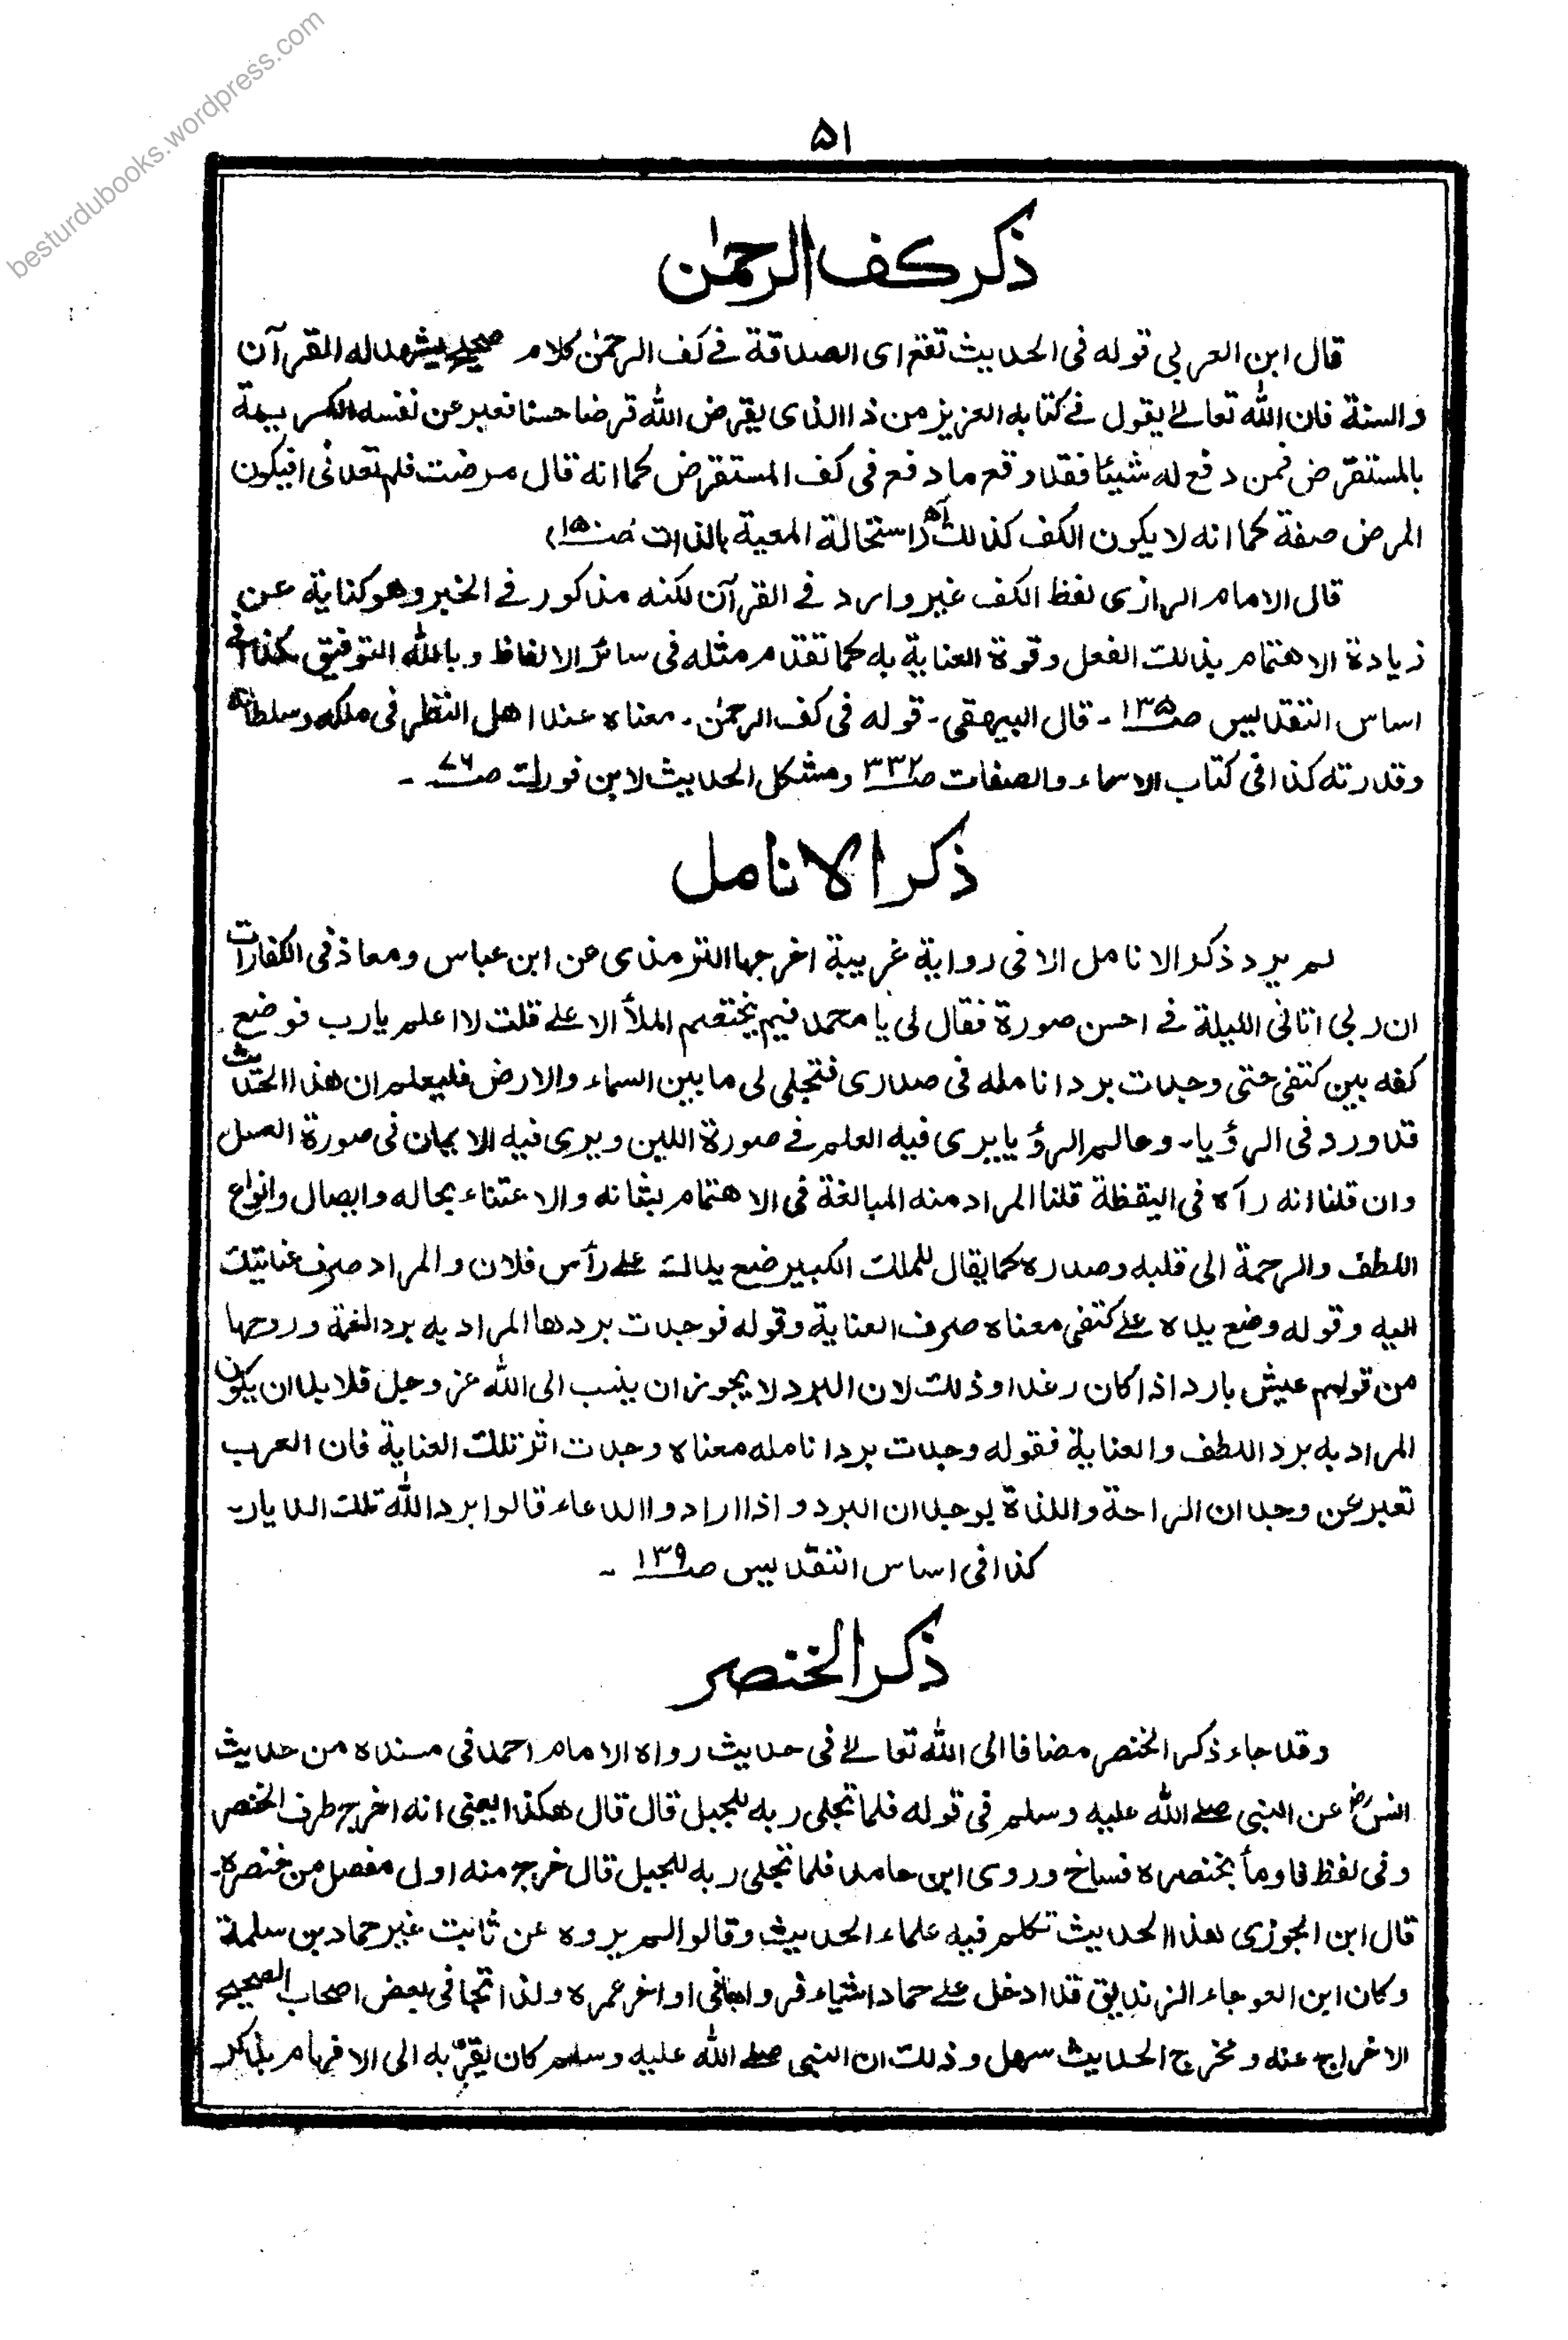 besturdubooks.wordpress.com
۵۱
ذکر کف الرحمٰن
قال ابن العربی قوله فی الحدیث تقع ای الصدقة فے کف الرحمٰن کلام صحیح یشهد له القرآن
والسنة فان الله تعالےٰ یقول فے کتابه العزیز من ذا الذی یقرض الله قرضا حسنا فعبر عن نفسه الکریمة
بالمستقرض فمن دفع له شیئا فقد وقع ما دفع فی کف المستقرض کما انه قال مرضت فلم تعدنی افیکون
المرض صفة کما انه لا یکون الکف کذلك اه (استحالة المعیة بالذات صـ ۱۵)
قال الامام الرازی لفظ الکف غیر وارد فے القرآن لکنه مذکور فے الخبر وهو کنایة عن
زیادة الاهتمام بذلك الفعل وقوة العنایة به کما تقدم مثله فی سائر الالفاظ وبالله التوفیق کذا فے
اساس التقدیس صـ ۱۳۵ - قال البیهقی - قوله فی کف الرحمٰن - معناه عند اهل النظر فی ملکه وسلطانه
وقدرته کذا فی کتاب الاسماء والصفات صـ ۳۳۲ ومشکل الحدیث لابن فورك صـ ۷۶ -
ذکر الانامل
لم یرد ذکر الانامل الا فی روایة غریبة اخرجها الترمذی عن ابن عباس ومعاذ فی الکفارات
ان ربی اتانی اللیلة فے احسن صورة فقال لی یا محمد فیم یختصم الملأ الاعلے قلت لا اعلم یارب فوضع
کفه بین کتفی حتی وجدت برد انامله فی صدری فتجلی لی ما بین السماء والارض فلیعلم ان هذا الحدیث
قد ورد فی الرؤیا - وعالم الرؤیا یری فیه العلم فے صورة اللبن ویری فیه الایمان فی صورة العسل
وان قلنا انه رآه فی الیقظة قلنا المراد منه المبالغة فی الاهتمام بشانه والاعتناء بحاله وایصال وانواع
اللطف والرحمة الی قلبه وصدره کما یقال للملك الکبیر ضع یدك علے رأس فلان والمراد صرف عنایتك
الیه وقوله وضع یده علے کتفی معناه صرف العنایة وقوله فوجدت بردها المراد به برد النعمة وروحها
من قولهم عیش بارد اذا کان رغدا وذلك لان البرد لا یجوز ان ینسب الی الله عز وجل فلا بد ان یکون
المراد به برد اللطف والعنایة فقوله وجدت برد انامله معناه وجدت اثر تلك العنایة فان العرب
تعبر عن وجدان الراحة واللذة بوجدان البرد واذا ارادوا الدعاء قالوا برد الله تلك الدیار -
کذا فی اساس التقدیس صـ ۱۳۹ -
ذکر الخنصر
وقد جاء ذکر الخنصر مضافا الی الله تعالےٰ فی حدیث رواه الامام احمد فی مسنده من حدیث
انسؓ عن النبی صلے الله علیه وسلم فی قوله فلما تجلی ربه للجبل قال قال هکذا یعنی انه اخرج طرف الخنصر
وفی لفظ فاومأ بخنصره فساخ وروی ابن حامد فلما تجلی ربه للجبل قال خرج منه اول مفصل من خنصره -
قال ابن الجوزی هذا الحدیث تکلم فیه علماء الحدیث وقالوا لم یروه عن ثابت غیر حماد بن سلمة
وکان ابن العوجاء الزندیق قد ادخل علے حماد اشیاء فرواها فی اواخر عمره ولذا تجافی بعض اصحاب الصحیح
الاخراج عنه ومخرج الحدیث سهل وذلك ان النبی صلے الله علیه وسلم کان یقرّبه الی الافهام بذکر